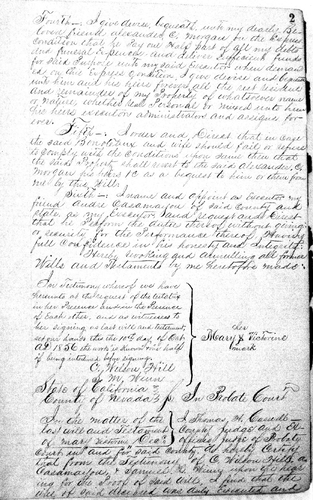 2
Fourth — I give devise, bequeath unto my dearly Be-
loved friend Alexander C. Morgan on the express
Condition that he pay one third part of all my debts
and funeral expenses and deliver sufficient funds
for said purpose unto my said executor when deman-
ded on this express Condition I give devise and bequeath
unto him and his heirs forever all the rest residue
and remainder of my Property of whatsoever name
or nature, whether Real Personal or mixed unto him
his heirs executors administrators and assigns for-
ever.
Fifth — I order and Direct that in case
the said
should fail or refuse
to comply with the Conditions
then that
the said Property shall vest to the said Alexander C.
Morgan his heirs &c as a bequest to him or them from
me by this Will.
Sixth — I name and appoint as executor my
friend
of said County and
State as my executor and request and Direct
that he perform the duties thereof without giving
security for the performance thereof, having
full Confidence in his honesty and integrity.
Hereby revoking and annulling all former
Wills and Testaments by me heretofore made.
In testimony whereof we have
hereunto at the request of the testatrix
in her Presence and in the Presence
of each other, and as witnesses to
her signing, as last will and testament,
set our hands this the 10th day of Oct
AD 1856
being interlined before signing.
her
Mary X
mark
C. Wilson Hill
S. M. Winn
State of California
County of Nevada
In Probate Court
In the matter of the
last will and Testament
of Mary
Dec'd
I Thomas H. Caswell
County Judge and Ex
officio Judge of Probate
Court in and for said County, do hereby Certify
that from the Testimony of C. Wilson Hill
upon the hear-
ing for the Proof of Said Will, I find that the
Will of said deceased was duly executed and